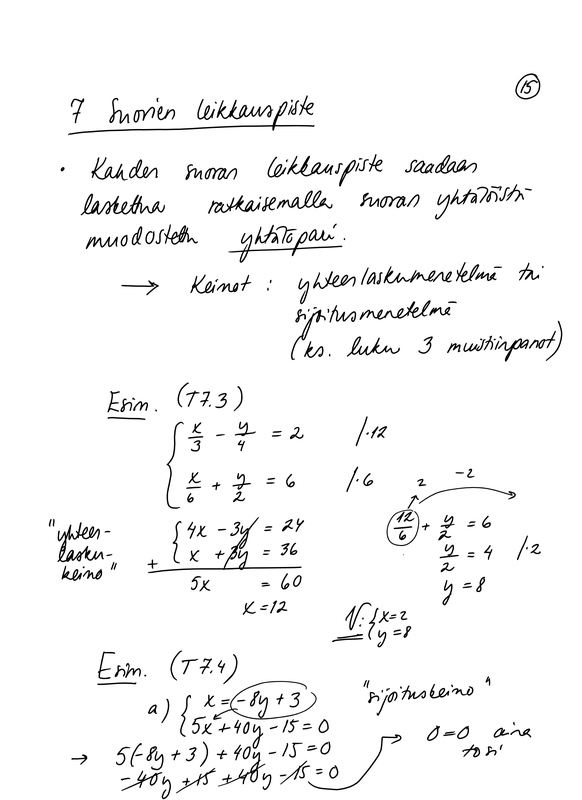 15
7 Suorien leikkauspiste
• Kahden suoran leikkauspiste saadaan
laskettua ratkaisemalla suoran yhtälöistä
muodostettu yhtälöpari.
→ Keinot : yhteenlaskumenetelmä tai
sijoitusmenetelmä
(ks. luku 3 muistiinpanot)
Esim. (T7.3)
{ x/3 - y/4 = 2 /·12
x/6 + y/2 = 6 /·6
"yhteen-
lasku-
keino"
{ 4x - 3y = 24
+ x + 3y = 36
5x = 60
x = 12
2 -2
12/6 + y/2 = 6
y/2 = 4 /·2
y = 8
V: { x = 2
y = 8
Esim. (T7.4)
a) { x = -8y + 3 "sijoituskeino"
5x + 40y - 15 = 0
→ 5(-8y + 3) + 40y - 15 = 0
-40y + 15 + 40y - 15 = 0
→ 0 = 0 aina
tosi